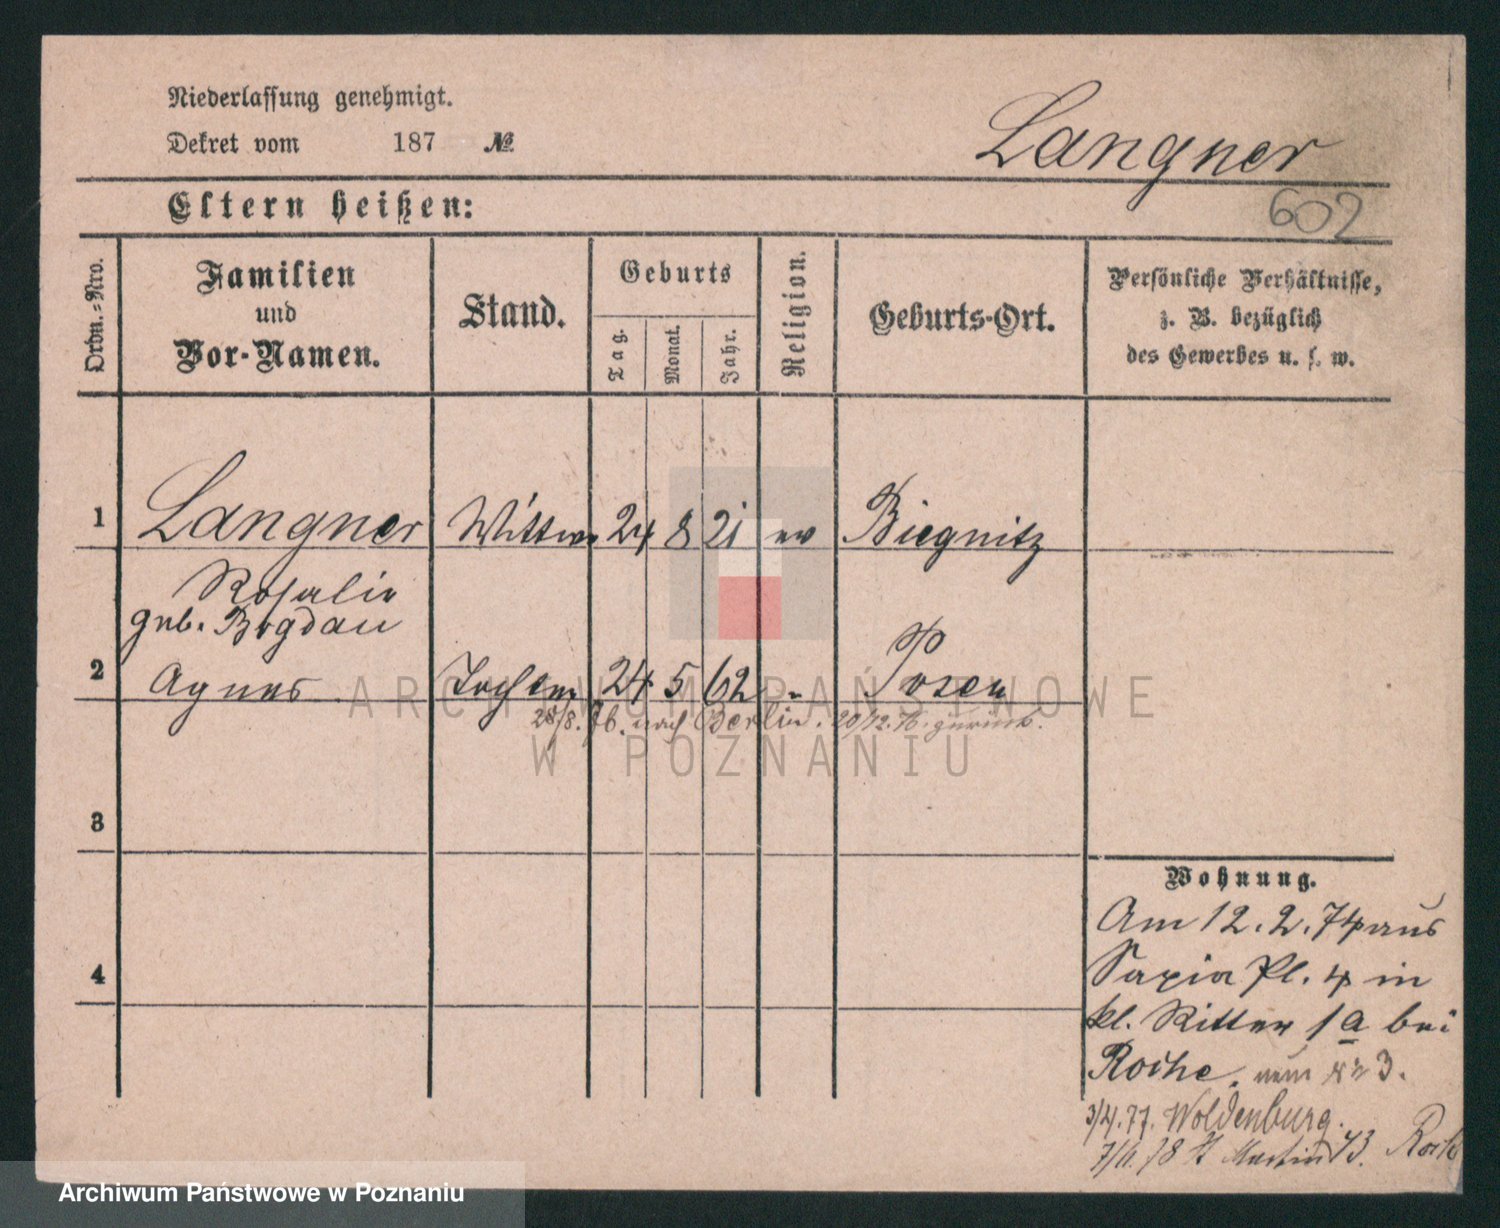 Niederlassung genehmigt.
Dekret vom 187 №
Langner
602
Eltern heißen:
Ordn.-Nro.
Familien
und
Vor-Namen.
Stand.
Geburts
Tag.
Monat.
Jahr.
Religion.
Geburts-Ort.
Persönliche Verhältnisse,
z. B. bezüglich
des Gewerbes u. s. w.
1 Langner Wittwe 24 8 21 ev Biegnitz
Rosalie
geb. Bogdan
2 Agnes Tochter 24 5 62 " Posen
28/8. 76. nach Berlin. 20/12. 76. zurück.
3
4
Wohnung.
Am 12. 2. 74 aus
Sapia Pl. 4 in
kl. Ritter 1a bei
Rothe. neue № 3.
3/4. 77. Woldenburg.
78 St Martin 43.
ARCHIWUM PAŃSTWOWE
W POZNANIU
Archiwum Państwowe w Poznaniu